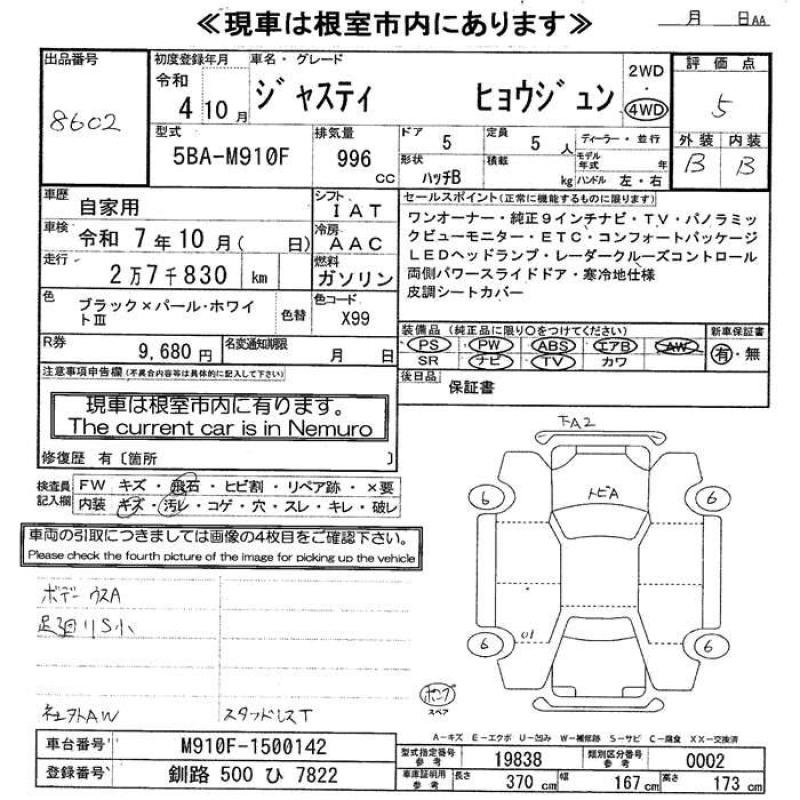 ≪現車は根室市内にあります≫
月 日AA
出品番号 8602
初度登録年月 令和 4 10月
車名・グレード ジャスティ ヒョウジュン
2WD・4WD
評価点 5
外装 B 内装 B
型式 5BA-M910F
排気量 996 cc
ドア 5 定員 5人 ディーラー・並行
形状 ハッチB 積載 kg モデル年式 年 ハンドル 左・右
車歴 自家用
車検 令和 7年10月( 日)
走行 2万7千830 km
色 ブラック×パール・ホワイトⅢ 色替
シフト IAT
冷房 AAC
燃料 ガソリン
色コード X99
セールスポイント(正常に機能するものに限ります)
ワンオーナー・純正9インチナビ・TV・パノラミッ
クビューモニター・ETC・コンフォートパッケージ
LEDヘッドランプ・レーダークルーズコントロール
両側パワースライドドア・寒冷地仕様
皮調シートカバー
R券 9,680円 名変通知期限 月 日
装備品(純正品に限り○をつけてください)
PS PW ABS エアB AW
SR ナビ TV カワ
新車保証書 有・無
後日品 保証書
注意事項申告欄(不具合内容等は具体的に記入して下さい)
現車は根室市内に有ります。
The current car is in Nemuro
修復歴 有〔箇所 〕
検査員記入欄
FW キズ・飛石・ヒビ割・リペア跡・×要
内装 キズ・汚レ・コゲ・穴・スレ・キレ・破レ
車両の引取につきましては画像の4枚目をご確認下さい。
Please check the fourth picture of the image for picking up the vehicle
ボデー ウスA
足廻りS小
スタッドレスT
FA2
トビA
6 6
6 6
スペア
A-キズ E-エクボ U-凹み W-補修跡 S-サビ C-腐食 XX-交換済
車台番号 M910F-1500142
登録番号 釧路 500 ひ 7822
型式指定番号 参考 19838 類別区分番号 参考 0002
車庫証明用 参考 長さ 370 cm 幅 167 cm 高さ 173 cm